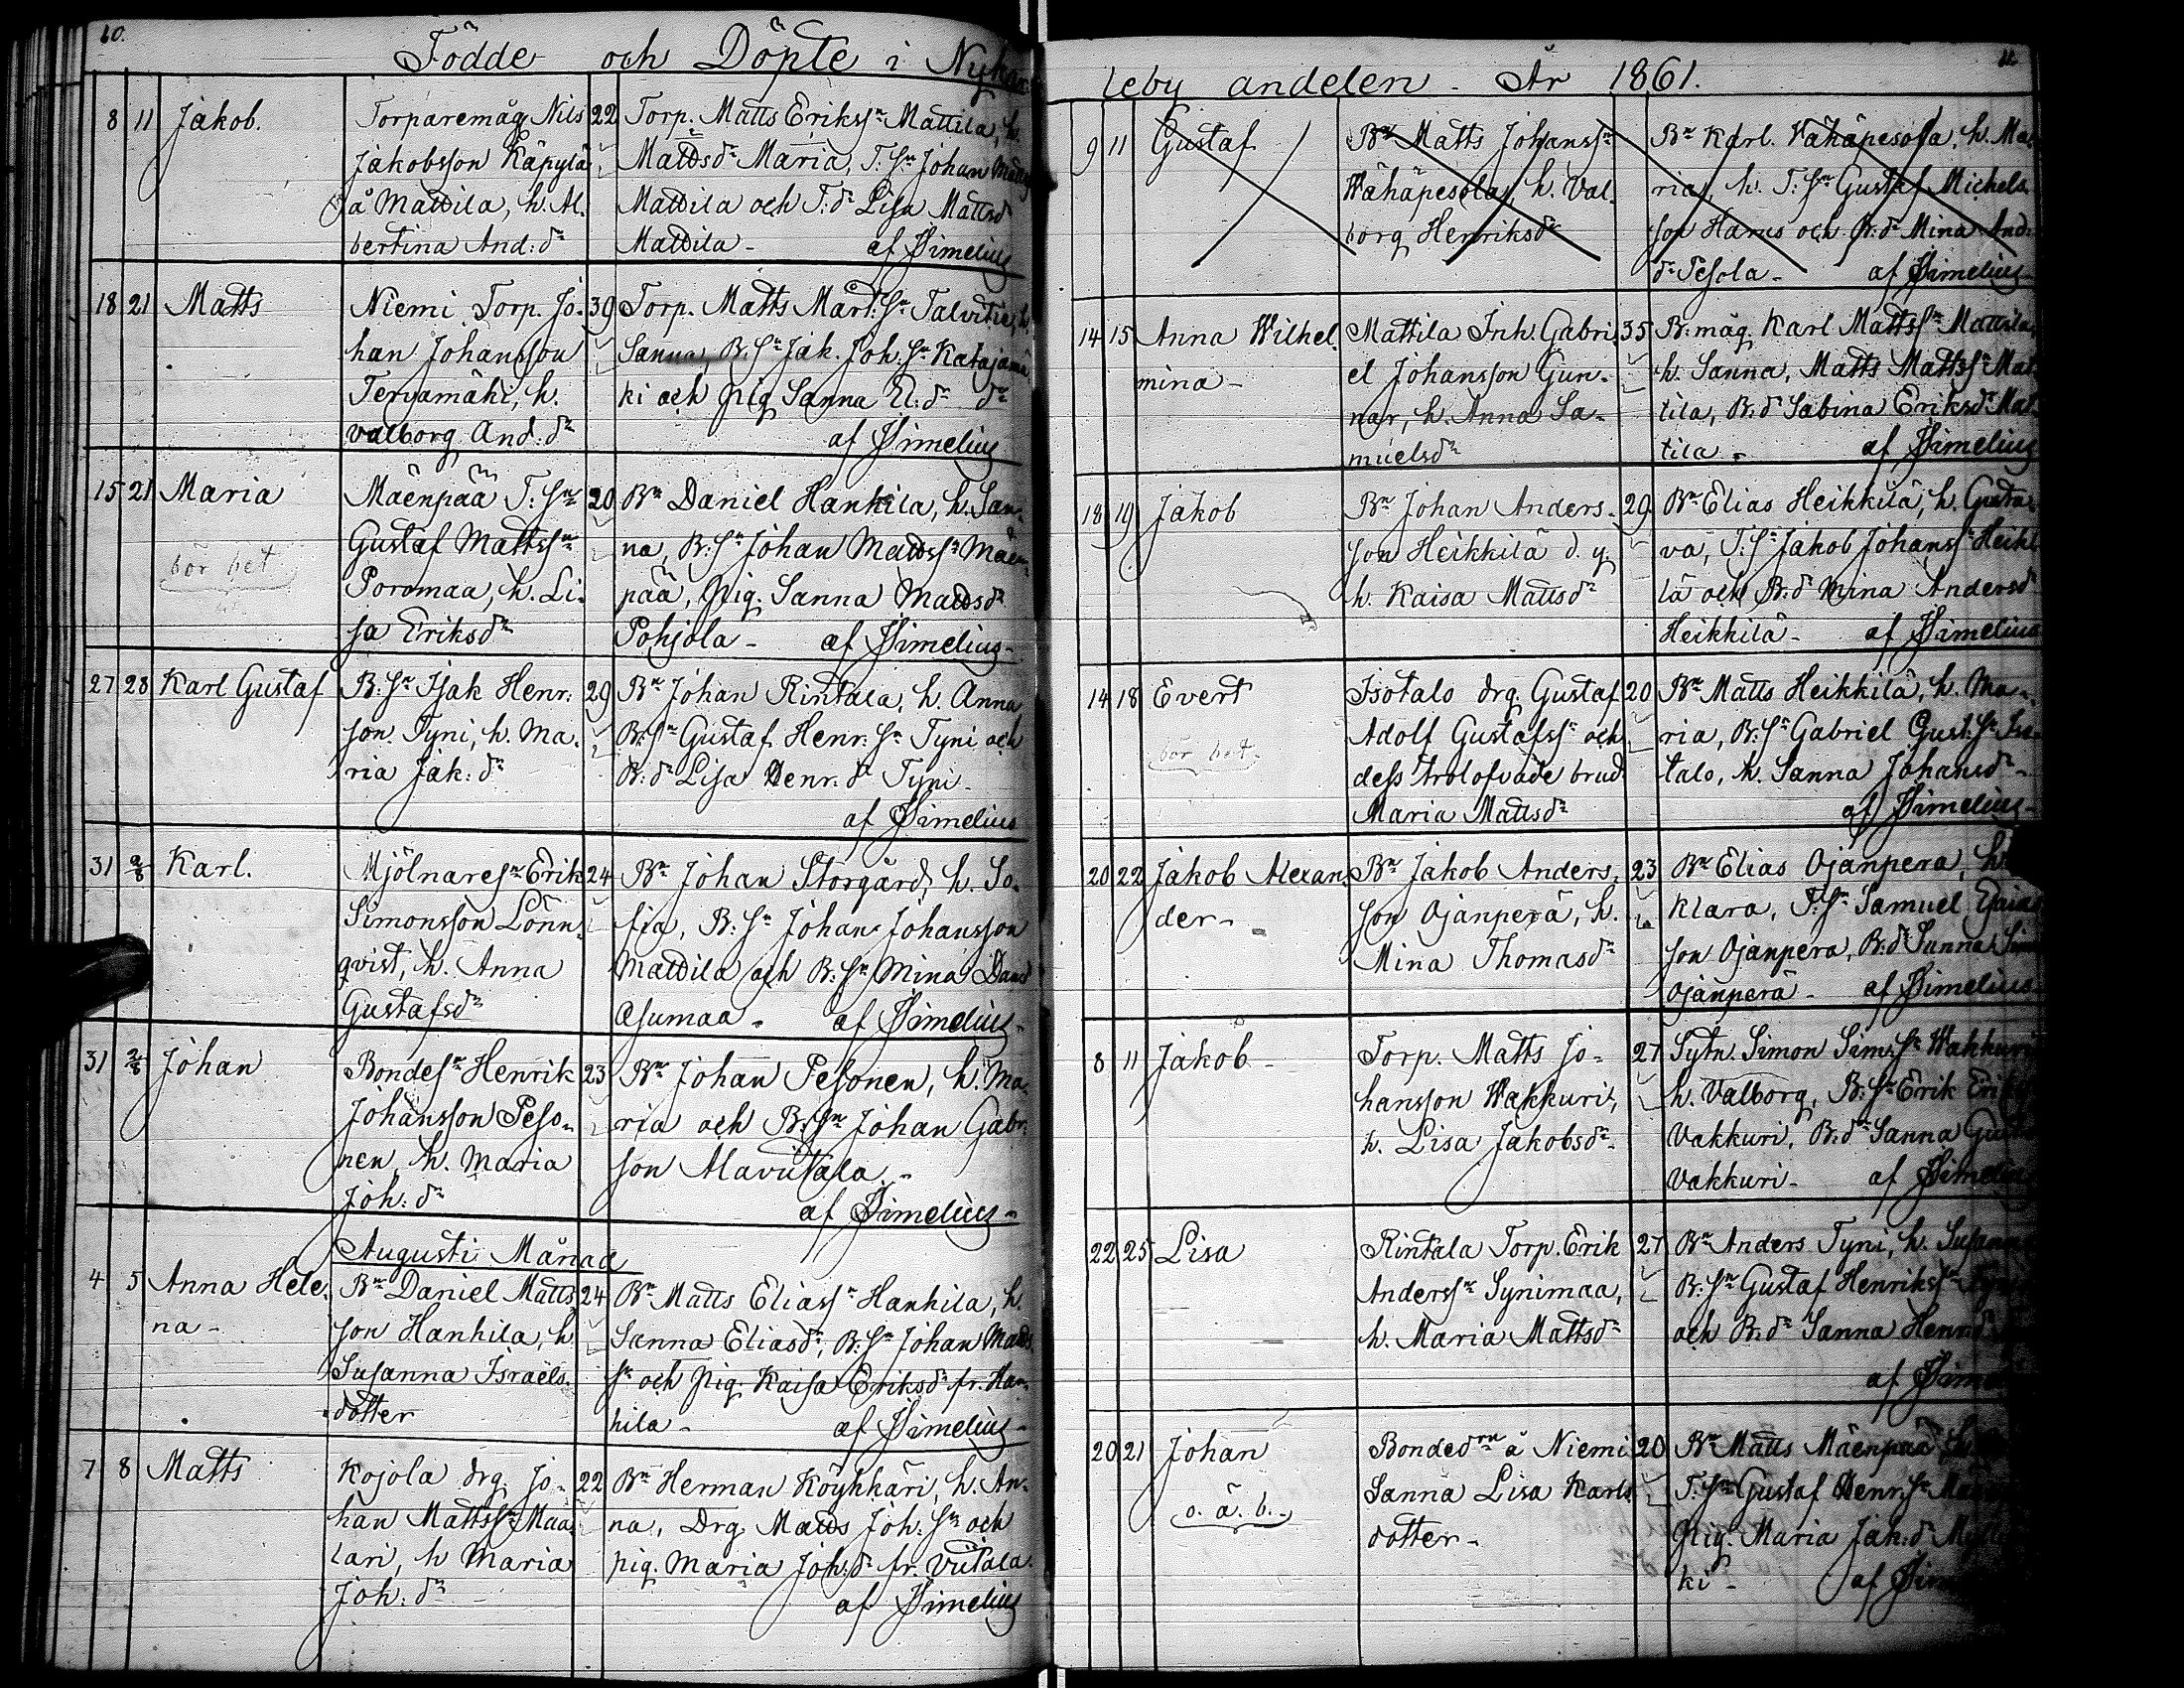 60.
Födde och Döpte i Nykar
8 11 Jakob.
Torparemåg Nils
Jakobsson Käpylä
å Mattila, h. Al.
bertina And:dr
22
Torp. Matts Erikssn Mattila, h.
Mattsdr Maria, T.Sn Johan Matts
Mattila och T:dr Lisa Mattsdr
Mattila - af Simelius
18 21 Matts
Niemi Torp. Jo-
han Johansson
Tervamäki, h.
Valborg And:dr
39
Torp. Matts Mårt:Sn Talvitie, h.
Sanna, B.Sn Jak. Joh.Sn Katajamä
ki och pig Sanna El:dr dr
af Simelius
15 21 Maria
bör bet
Mäenpää T:Sn
Gustaf Mattssn
Poromaa, h. Li-
sa Eriksdr
20
Bn Daniel Hankila, h. San-
na, B:Sn Johan Mattssn Mäen-
pää, Pig. Sanna Mattsdr
Pohjola - af Simelius -
27 28 Karl Gustaf
B:Sn Isak Henr:
son Tyni, h. Ma-
ria Jak:dr
29
Bn Johan Rintala, h. Anna
B:Sn Gustaf Henr:Sn Tyni och
B:dr Lisa Henr.dr Tyni
af Simelius
31 2/8 Karl.
Mjölnaresn Erik
Simonsson Lönn-
qvist, h. Anna
Gustafsdr
24
Bn Johan Storgård, h. So-
fia, B:Sn Johan Johansson
Mattila och B:Sn Mina Dan:dr
Asumaa - af Simelius -
31 2/8 Johan
Bondesn Henrik
Johansson Peso-
nen, h. Maria
Joh:dr
23
Bn Johan Pesonen, h. Ma-
ria och B:Sn Johan Gabr.
son Alaviitala -
af Simelius -
Augusti Månad
4 5 Anna Hele-
na -
Bn Daniel Matts
son Hanhila, h.
Susanna Israels-
dotter
24
Bn Matts Eliassn Hanhila, h.
Sanna Eliasdr, B:Sn Johan Matts
Sn och pig. Kaisa Eriksdr fr. Han-
hila - af Simelius -
7 8 Matts
Kojola drg. Jo-
han Mattssn Mää-
lari, h Maria
Joh:dr
22
Bn Herman Köykkäri, h. An-
na, Drg Matts Joh:Sn och
pig. Maria Joh:dr fr. Viitala.
af Simelius
leby andelen. År 1861.
9 11 Gustaf
Bn Matts Johanssn
Wähäpesola, h. Val-
borg Henriksdr
Bn Karl. Vähäpesola, h. Ma-
ria, h. T:Sn Gustaf Michels
son Harus och B:dr Mina And:
dr Pesola - af Simelius -
14 15 Anna Wilhel.
mina -
Mattila Inh. Gabri-
el Johansson Gun-
nar, h. Anna Sa-
muelsdr
35
B:måg Karl Mattssn Mattila,
h. Sanna, Matts Mattssn Mat
tila, B.dr Sabina Eriksdr Mat-
tila - af Simelius
18 19 Jakob
Bn Johan Anders-
son Heikkilä d. y.
h. Kaisa Mattsdr
29
Bn Elias Heikkilä, h. Gusta-
va, T:Sn Jakob Johanssn Heikk
lä och B:dr Mina Andersdr
Heikkilä - af Simelius
14 18 Evert
bör bet
Isotalo drg Gustaf
Adolf Gustafssn och
dess trolofvade brud
Maria Mattsdr
20
Bn Matts Heikkilä, h. Ma-
ria, B:Sn Gabriel Gust:Sn Iso-
talo, h. Sanna Johansdr -
af Simelius -
20 22 Jakob Alexan-
der -
Bn Jakob Anders-
son Ojanperä, h.
Mina Thomasdr
23
Bn Elias Ojanperä, h.
Klara, T:Sn Samuel Esaias
son Ojanperä, B:dr Sanna Sim
Ojanperä - af Simelius
8 11 Jakob -
Torp. Matts Jo-
hansson Wakkuri,
h. Lisa Jakobsdr -
27
Sytn. Simon Sim:Sn Wakkuri
h. Valborg, B:Sn Erik Erik
Vakkuri, B.dr Sanna Gust
Vakkuri - af Simelius
22 25 Lisa
Rintala Torp. Erik
Anderssn Synimaa,
h. Maria Mattsdr
27
Bn Anders Tyni, h. Susanna
B:Sn Gustaf Henrikssn Tyni
och B:dr Sanna Henr:dr
af Sime
20 21 Johan
o. ä. b. -
Bondedrn å Niemi
Sanna Lisa Karls
dotter -
20
Bn Matts Mäenpää, h.
T:Sn Gustaf Henr:Sn
Pig. Maria Jak:dr
ki - af Sim